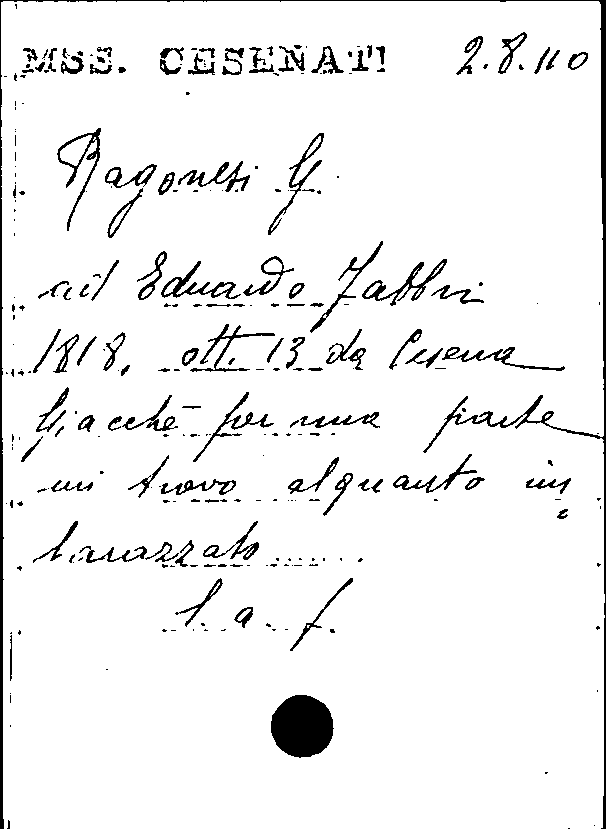 MSS. CESENATI 2.8.110
Ragonesi G.
ad Eduardo Fabbri
1818, ott. 13 da Cesena
Giacchè per una parte
mi trovo alquanto im=
barazzato .......
l. a. f.